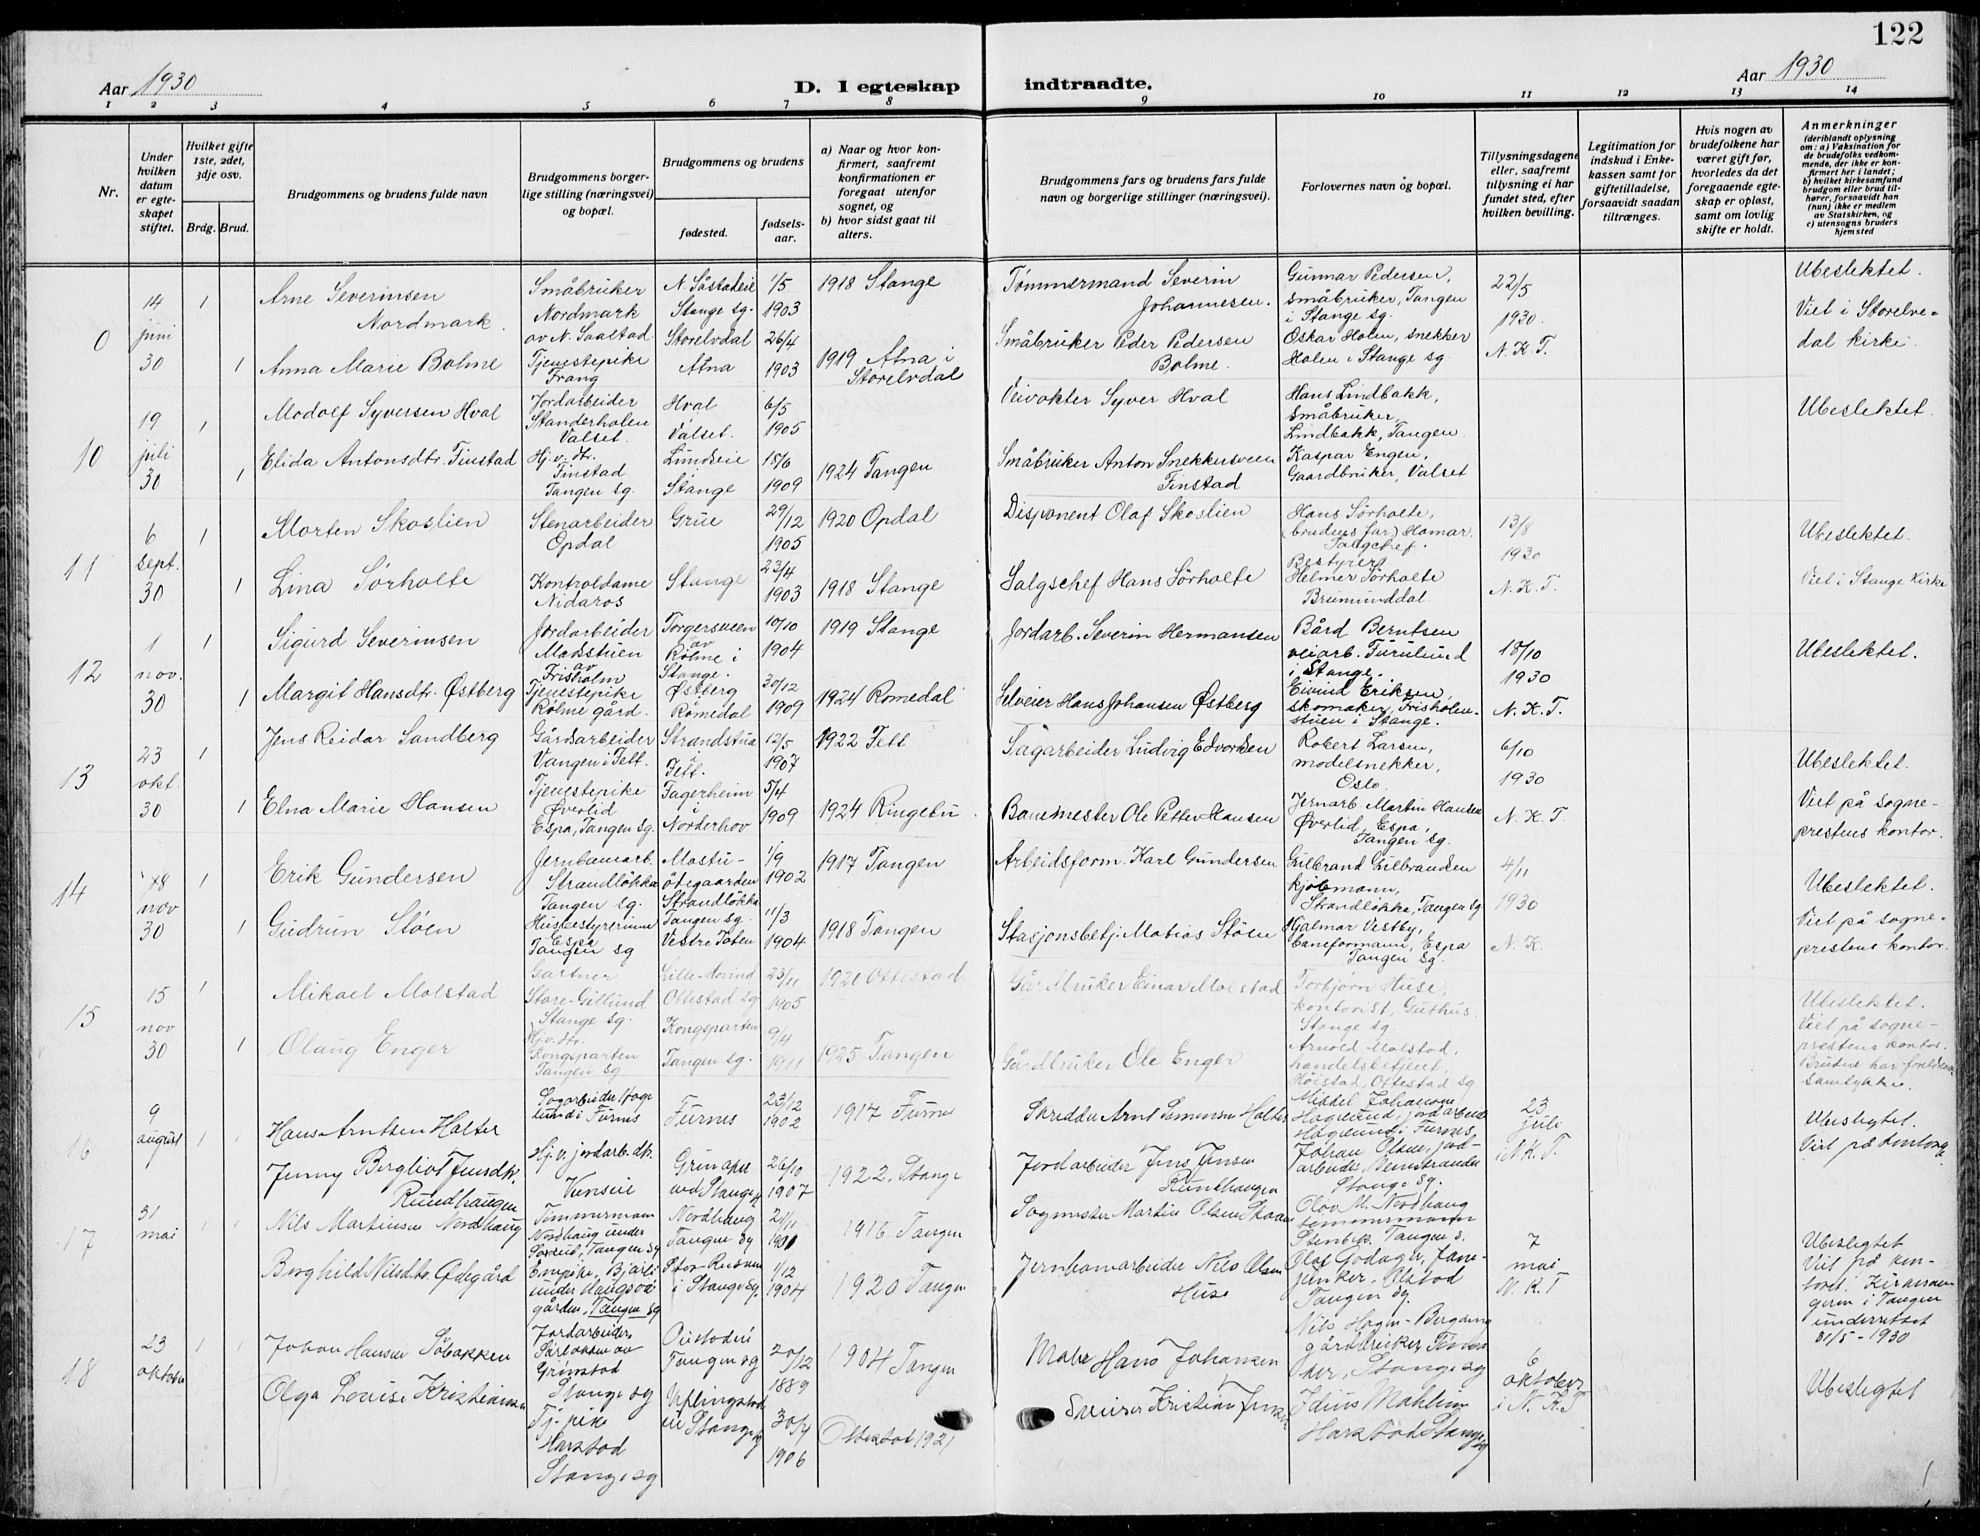 122
Aar 1930
D. I egteskap indtraadte.
Aar 1930
1 2 3 4 5 6 7 8 9 10 11 12 13 14
Nr.
Under hvilken datum er egteskapet stiftet.
Hvilket gifte 1ste, 2det, 3dje osv.
Brdg. Brud.
Brudgommens og brudens fulde navn
Brudgommens borgerlige stilling (næringsvei) og bopæl.
Brudgommens og brudens
fødested.
fødselsaar.
a) Naar og hvor konfirmert, saafremt konfirmationen er foregaat utenfor sognet, og
b) hvor sidst gaat til alters.
Brudgommens fars og brudens fars fulde navn og borgerlige stillinger (næringsvei).
Forlovernes navn og bopæl.
Tillysningsdagene eller, saafremt tillysning ei har fundet sted, efter hvilken bevilling.
Legitimation for indskud i Enkekassen samt for giftetilladelse, forsaavidt saadan tiltrænges.
Hvis nogen av brudefolkene har været gift før, hvorledes da det foregaaende egteskap er opløst, samt om lovlig skifte er holdt.
Anmerkninger
(deriblandt oplysning om: a) Vaksination for de brudefolks vedkommende, der ikke er konfirmert her i landet; b) hvilket kirkesamfund brudgom eller brud tilhører, forsaavidt han (hun) ikke er medlem av Statskirken, og c) utensogns bruders hjemsted
0
14 juni 30
1
Arne Severinsen Nordmark.
Småbruker Nordmark av N. Saastad
Stange sg.
1/5 1903
1918 Stange
Tømmermand Severin Johannesen.
Gunnar Pedersen, småbruker, Tangen i Stange sg.
22/5 1930. N. K. T.
Ubeslektet.
Viet i Storelvedal kirke.
1
Anna Marie Bolme
Tjenestepike Frang
Storelvdal Atna
26/4 1903
1919 Atna i Storelvdal
Småbruker Peder Pedersen Bolme.
Oskar Holen, snekker Holen i Stange sg.
10
19 juli 30
1
Modolf Syversen Hval
Jordarbeider Standerholen Valset.
Hval Valset.
6/5 1905
Veivokter Syver Hval
Hans Lindbakk, småbruker, Lindbakk, Tangen.
Ubeslektet.
1
Elida Antonsdtr. Finstad
Hj.v. dtr. Finstad Tangen sg.
Lundseie Stange
18/6 1909
1924 Tangen
Småbruker Anton Snekkersveen Finstad
Kaspar Engen, Gaardbruker, Valset
11
6 sept. 30
1
Morten Skoslien
Stenarbeider Opdal
Grue
29/12 1905
1920 Opdal
Disponent Olaf Skoslien
Hans Sørholte, (brudens far) Hamar. Salgchef.
13/8 1930 N. K. T.
Ubeslektet.
Viet i Stange Kirke
1
Lina Sørholte
Kontroldame Nidaros
Stange
23/4 1903
1918 Stange
Salgschef Hans Sørholte
Bestyrer Helmer Sørholte Brumunddal.
12
1 nov. 30
1
Sigurd Severinsen
Jordarbeider Madsstuen av Frisholm
Torgersveen av Rølme i Stange.
10/10 1904
1919 Stange
Jordarb. Severin Hermansen
Bård Berntsen veiarb. Furulund i Stange.
18/10 1930 N. K. T.
Ubeslektet.
1
Margit Hansdtr. Østberg
Tjenestepike Rølme gård.
Østberg Romedal
30/12 1909
1924 Romedal
Selveier Hans Johansen Østberg
Eivind Eriksen, skomaker, Frisholmstuen i Stange.
13
23 okt. 30
1
Jens Reidar Sandberg
Gårdsarbeider Vangen i Fett.
Strandstua Fett.
12/5 1907
1922 Fett
Sagarbeider Ludvig Edvardsen
Robert Larsen, modelsnekker, Oslo.
6/10 1930 N. K. T.
Ubeslektet.
Viet på sogneprestens kontor.
1
Elna Marie Hansen
Tjenestepike Øverlid Espa, Tangen sg.
Fagerheim i Norderhov
5/4 1909
1924 Ringebu.
Banemester Ole Petter Hansen
Jernarb. Martin Hansen Øverlid, Espa, Tangen sg.
14
18 nov 30
1
Erik Gundersen
Jernbanearb. Strandløkka Tangen sg.
Mostuødegaarden Strandløkka Tangen sg.
1/9 1902
1917 Tangen
Arbeidsform. Karl Gundersen
Gulbrand Gulbrandsen kjøbmann, Strandløkka, Tangen sg
4/11 1930 N. K.
Ubeslektet.
Viet på sogneprestens kontor.
1
Gudrun Støen
Husbestyrerinne Espa Tangen sg
Vestre Toten
11/3 1904
1918 Tangen
Stasjonsbetj. Matias Støen
Hjalmar Vestby, baneformann, Espa Tangen sg.
15
15 nov 30
1
Mikael Molstad
Gartner Store-Gillund Stange sg.
Lille-Hovind Ottestad sg
23/11 1905
1920 Ottestad
Gårdbruker Einar Molstad
Torbjørn Huse, kontorist, Guthus. Stange sg.
Ubeslektet.
Viet på sogneprestens kontor.
Bruden har foreldrenes samtykke.
1
Olaug Enger
Hj.v.dtr. Kongsparten Tangen sg
Kongsparten Tangen sg.
9/4 1911
1925 Tangen
Gårdbruker Ole Enger
Arnold Molstad, handelsbetjent, Høistad, Ottestad sg
16
9 august
1
Hans Arntsen Holter
Sagarbeider Haglund i Furnes
Furnes
23/12 1902
1917 Furnes
Skredder Arnt Holter
Haglund i Furnes,
23 juli N. K. T.
Ubeslegtet.
Viet på kontoret.
1
Jenny Bergliot Jensdtr. Rundhaugen
Hj.v. jordarb. dtr.
26/10 1907
1922. Stange
Jordarbeider Jens Jensen Rundhaugen
Johan Olsen, jordarbeider, Stange sg.
17
31 mai
1
Nils Martinsen Nordhaug
Tømmermann Nordhaug under Tangen sg
Nordhaug Tangen sg
1916 Tangen
Sagmester Martin Olsen
Olav M. Nordhaug tømmermann Tangen s.
7 mai N. K. T
Ubeslegtet
Viet på kontoret. Kirkesangeren i Tangen underrettet 31/5 - 1930
1
Borghild Nilsdtr. Ødegård
under gården, Tangen sg
i Stange sg.
1/12 1904
1920 Tangen
Jernbanearbeider Nils Olsen Huse
Tangen sg.
18
23 oktober
1
Johan Hansen Søbakken
Jordarbeider, Grimstad Stange sg
Tangen sg
20/12 1889
1904 Tangen
Hans Johansen
gårdbruker Stange sg
6 oktober i N. K. T
Ubeslegtet
1
Olga Louise Kristiansen
Tj.pike Harstad Stange sg
Stange sg
30/4 1906
Ottestad 1921
Kristian
Julius Harstad Stange sg